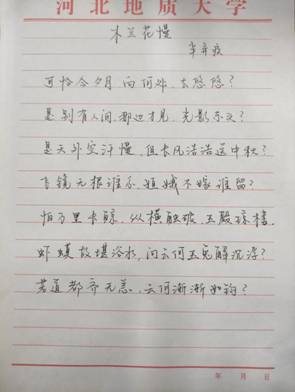 河北地质大学
木兰花慢
辛弃疾
可怜今夕月 向何处、去悠悠?
是别有人间,那边才见,光影东头?
是天外空汗漫,但长风浩浩送中秋?
飞镜无根谁系,姮娥不嫁谁留?
怕万里长鲸,纵横触破,玉殿琼楼,
虾蟆故堪浴水,问云何玉兔解沉浮?
若道都齐无恙,云何渐渐如钩?
年 月 日